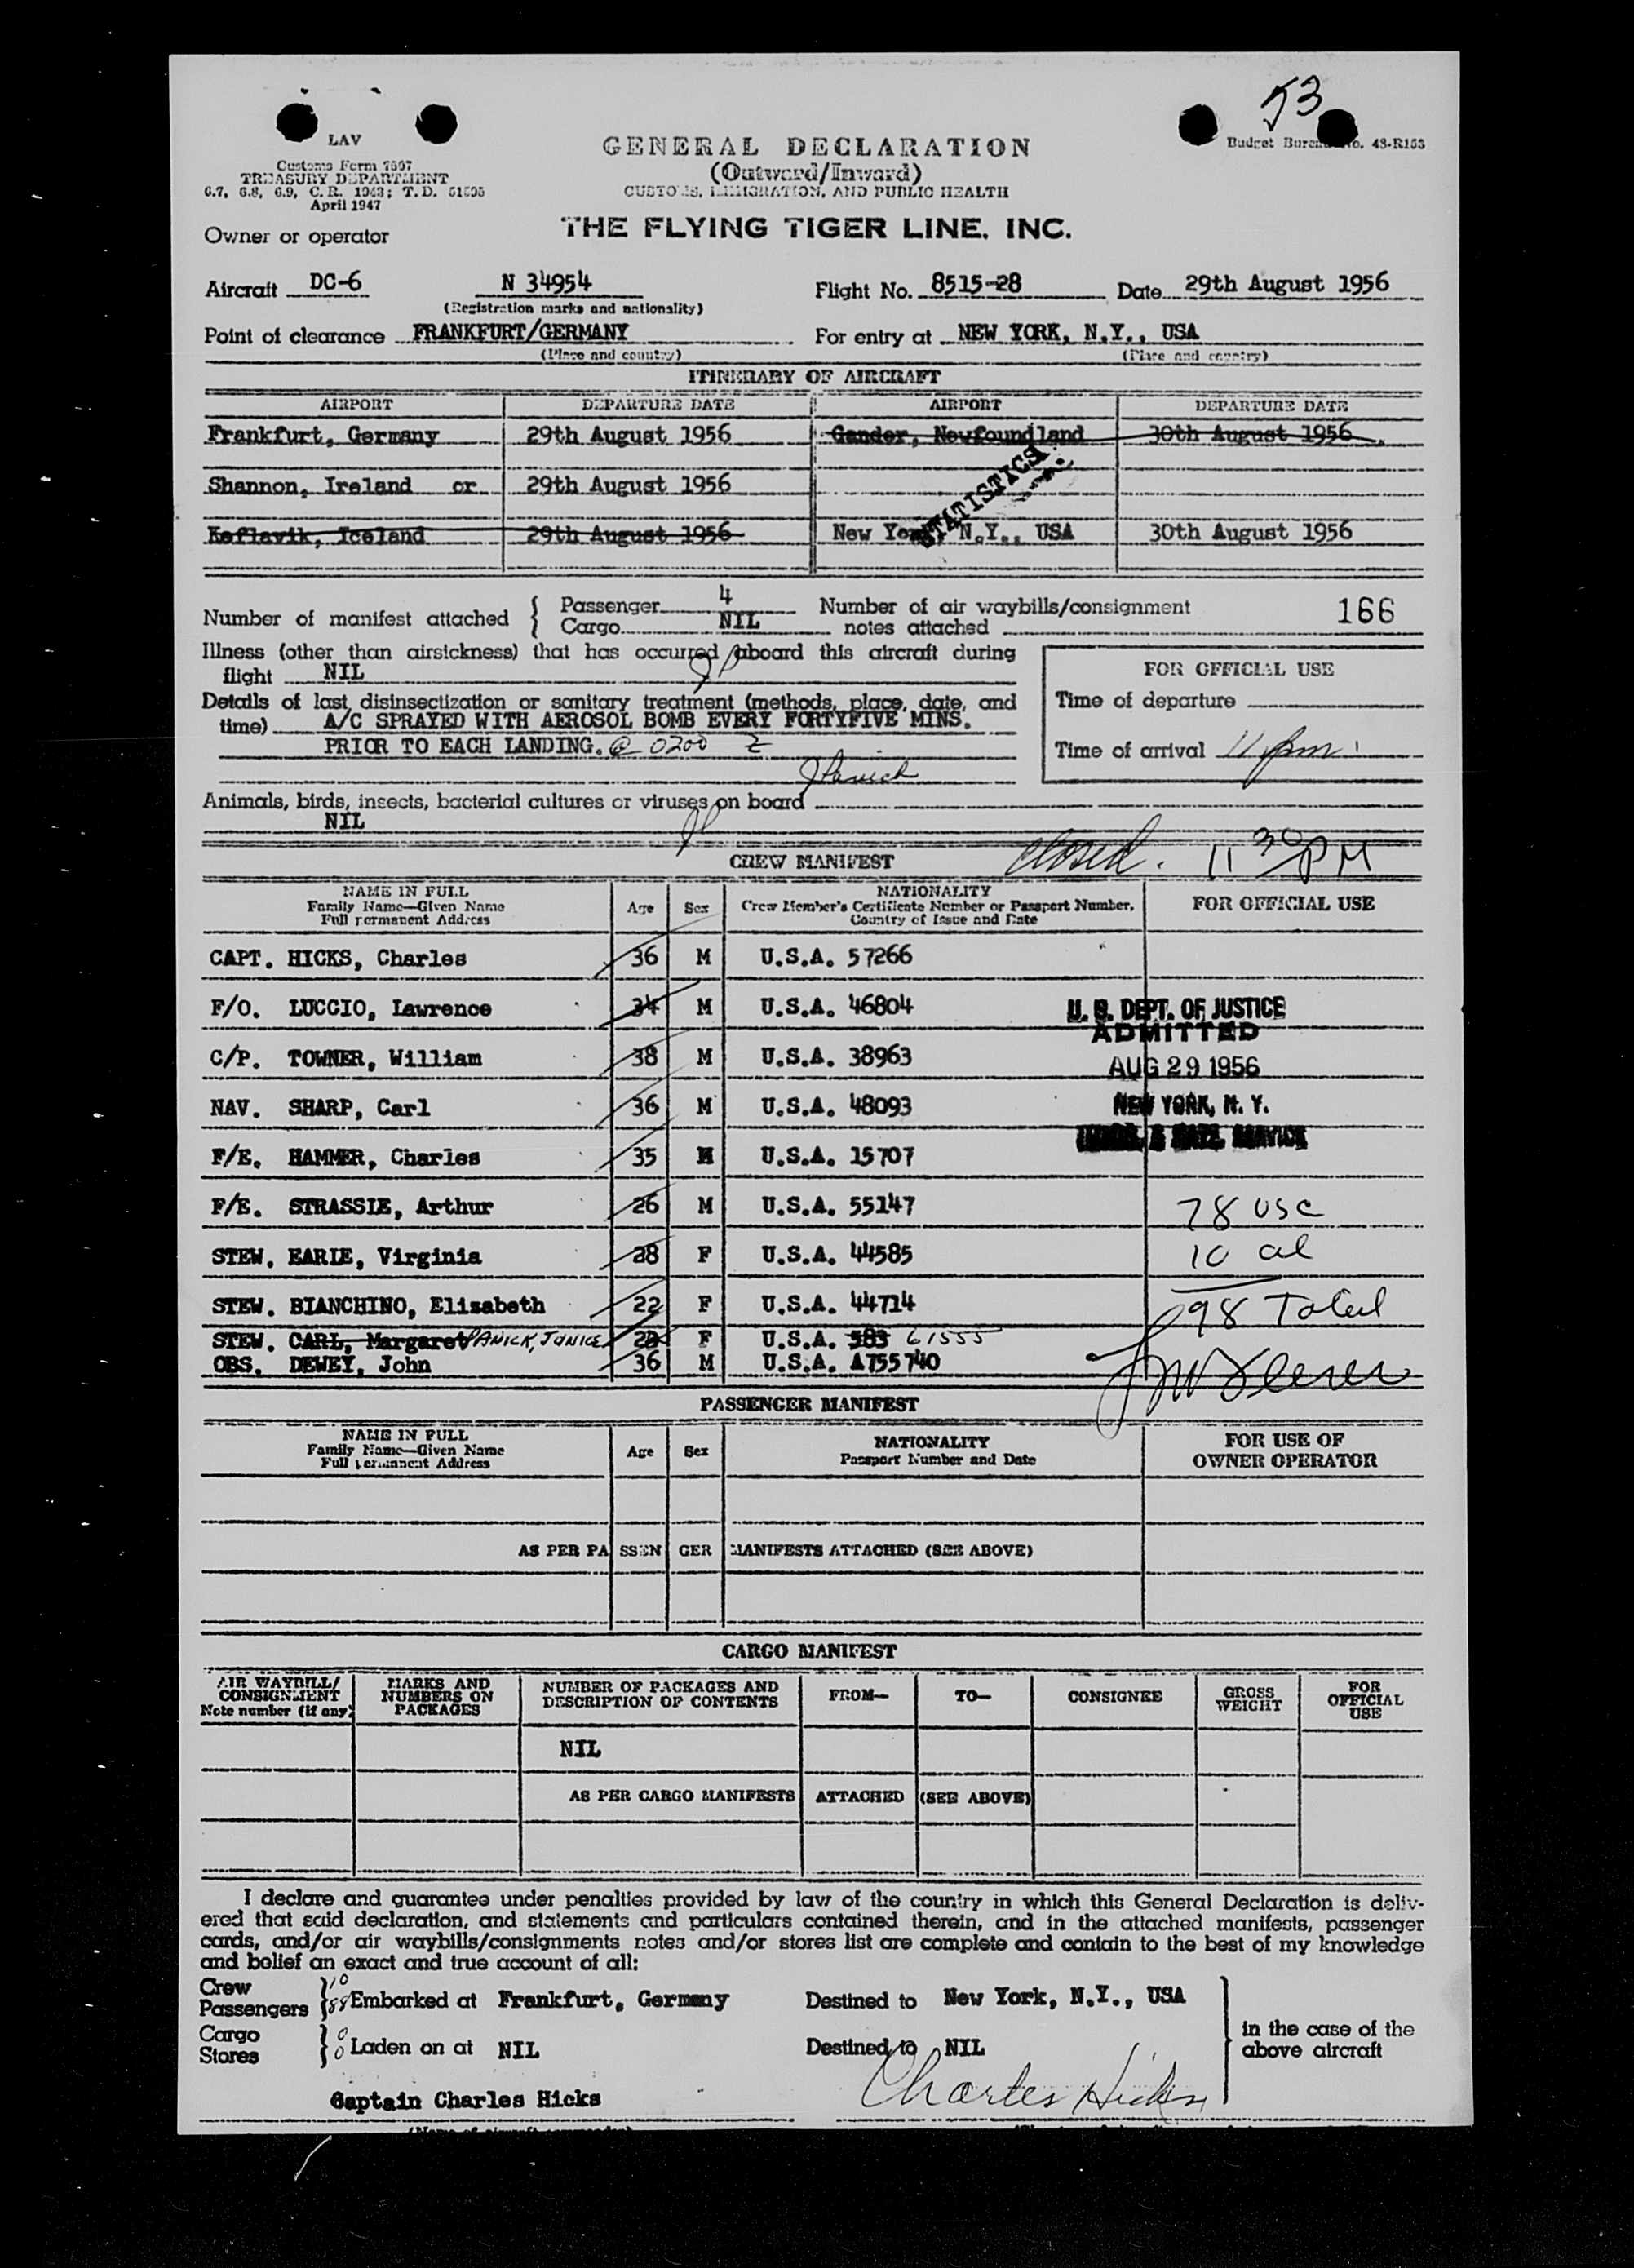 53
LAV
Customs Form 7507
TREASURY DEPARTMENT
6.7, 6.8, 6.9, C.R. 1943; T.D. 51595
April 1947
Budget Bureau No. 48-R153
GENERAL DECLARATION
(Outward/Inward)
CUSTOMS, IMMIGRATION, AND PUBLIC HEALTH
Owner or operator THE FLYING TIGER LINE, INC.
Aircraft DC-6 N 34954 Flight No. 8515-28 Date 29th August 1956
(Registration marks and nationality)
Point of clearance FRANKFURT/GERMANY For entry at NEW YORK, N.Y., USA
(Place and country) (Place and country)
ITINERARY OF AIRCRAFT
AIRPORT DEPARTURE DATE AIRPORT DEPARTURE DATE
Frankfurt, Germany 29th August 1956 Gander, Newfoundland 30th August 1956
Shannon, Ireland or 29th August 1956
STATISTICS
Keflavik, Iceland 29th August 1956 New York, N.Y., USA 30th August 1956
Number of manifest attached { Passenger 4 Number of air waybills/consignment 166
Cargo NIL notes attached
Illness (other than airsickness) that has occurred aboard this aircraft during
flight NIL JP
FOR OFFICIAL USE
Details of last disinsectization or sanitary treatment (methods, place, date, and
time) A/C SPRAYED WITH AEROSOL BOMB EVERY FORTYFIVE MINS.
PRIOR TO EACH LANDING. @ 0200 Z
JPanick
Time of departure
Time of arrival 11 pm
Animals, birds, insects, bacterial cultures or viruses on board
NIL JP
closed. 11 30 PM
CREW MANIFEST
NAME IN FULL
Family Name—Given Name
Full Permanent Address
Age Sex
NATIONALITY
Crew Member's Certificate Number or Passport Number,
Country of Issue and Date
FOR OFFICIAL USE
CAPT. HICKS, Charles 36 M U.S.A. 57266
F/O. LUCCIO, Lawrence 34 M U.S.A. 46804
C/P. TOWNER, William 38 M U.S.A. 38963
NAV. SHARP, Carl 36 M U.S.A. 48093
F/E. HAMMER, Charles 35 M U.S.A. 15707
F/E. STRASSIE, Arthur 26 M U.S.A. 55147
STEW. EARIE, Virginia 28 F U.S.A. 44585
STEW. BIANCHINO, Elizabeth 22 F U.S.A. 44714
STEW. CARL, Margaret PANICK, JANICE 23 F U.S.A. 583 61555
OBS. DEWEY, John 36 M U.S.A. A755740
U. S. DEPT. OF JUSTICE
ADMITTED
AUG 29 1956
NEW YORK, N. Y.
IMMIG. & NATZ. SERVICE
78 USC
10 al
98 Total
PASSENGER MANIFEST
NAME IN FULL
Family Name—Given Name
Full Permanent Address
Age Sex
NATIONALITY
Passport Number and Date
FOR USE OF
OWNER OPERATOR
AS PER PASSENGER MANIFESTS ATTACHED (SEE ABOVE)
CARGO MANIFEST
AIR WAYBILL/
CONSIGNMENT
Note number (if any)
MARKS AND
NUMBERS ON
PACKAGES
NUMBER OF PACKAGES AND
DESCRIPTION OF CONTENTS
FROM— TO— CONSIGNEE
GROSS
WEIGHT
FOR
OFFICIAL
USE
NIL
AS PER CARGO MANIFESTS ATTACHED (SEE ABOVE)
I declare and guarantee under penalties provided by law of the country in which this General Declaration is deliv-
ered that said declaration, and statements and particulars contained therein, and in the attached manifests, passenger
cards, and/or air waybills/consignments notes and/or stores list are complete and contain to the best of my knowledge
and belief an exact and true account of all:
Crew } 10
Passengers } 88 Embarked at Frankfurt, Germany Destined to New York, N.Y., USA
Cargo } 0
Stores } 0 Laden on at NIL Destined to NIL
in the case of the
above aircraft
Captain Charles Hicks Charles Hicks